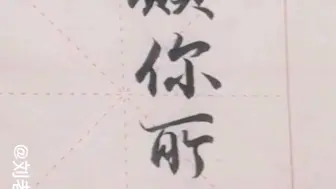 你所
@刘